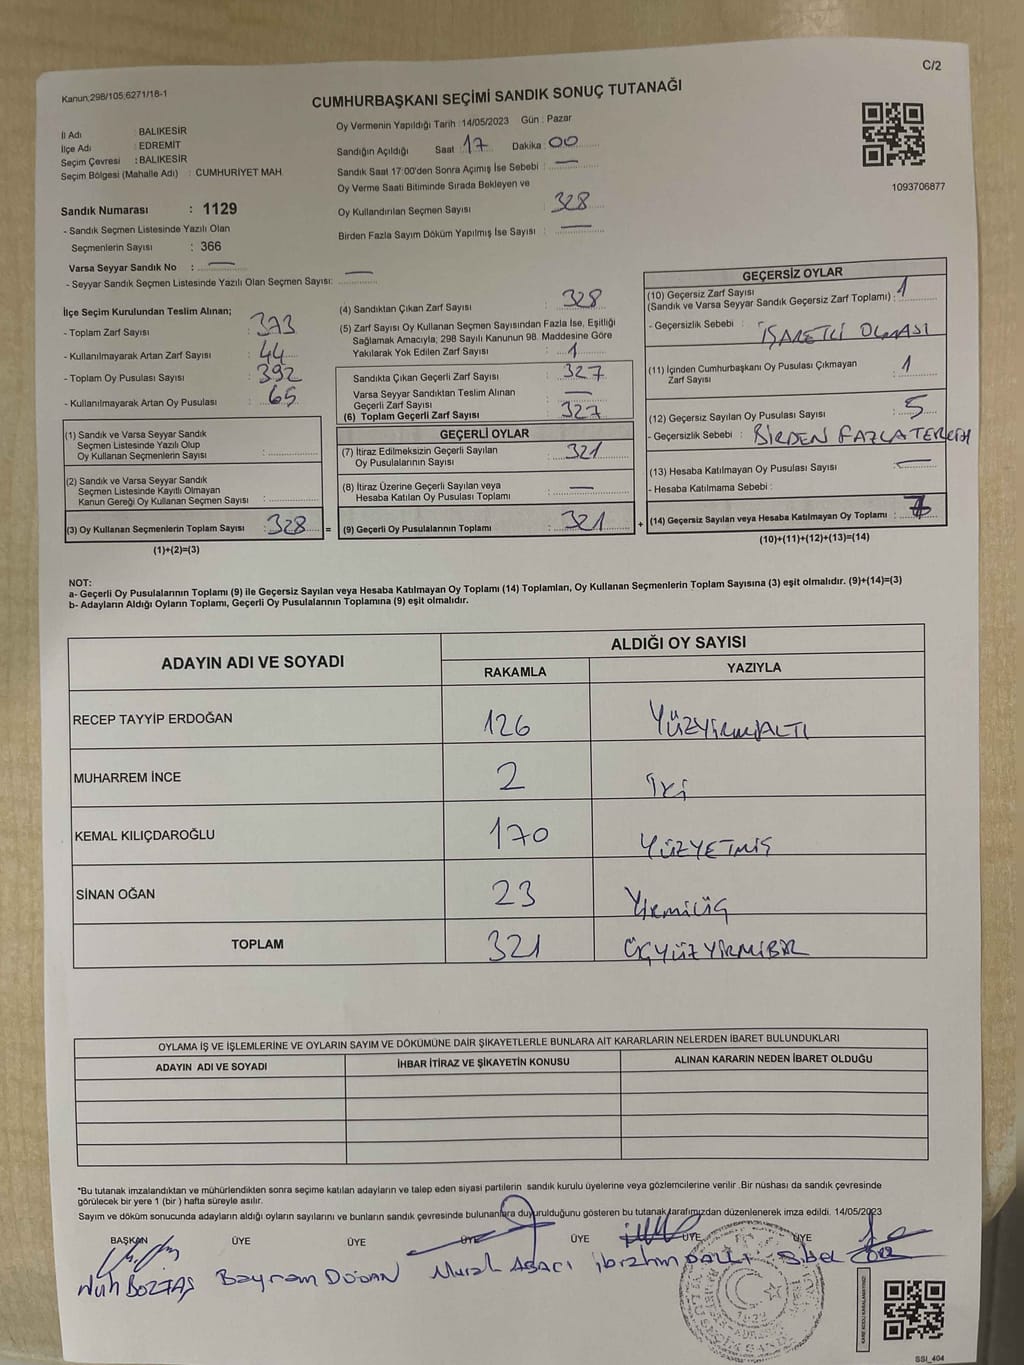 C/2
Kanun;298/105;6271/18-1
CUMHURBAŞKANI SEÇİMİ SANDIK SONUÇ TUTANAĞI
İl Adı : BALIKESİR
İlçe Adı : EDREMİT
Seçim Çevresi : BALIKESİR
Seçim Bölgesi (Mahalle Adı) : CUMHURİYET MAH.
Oy Vermenin Yapıldığı Tarih : 14/05/2023 Gün : Pazar
Sandığın Açıldığı Saat : 17 Dakika : 00
Sandık Saat 17:00'den Sonra Açımış İse Sebebi : —
Oy Verme Saati Bitiminde Sırada Bekleyen ve
Oy Kullandırılan Seçmen Sayısı : 328
Birden Fazla Sayım Döküm Yapılmış İse Sayısı : —
1093706877
Sandık Numarası : 1129
- Sandık Seçmen Listesinde Yazılı Olan
Seçmenlerin Sayısı : 366
Varsa Seyyar Sandık No : —
- Seyyar Sandık Seçmen Listesinde Yazılı Olan Seçmen Sayısı: —
İlçe Seçim Kurulundan Teslim Alınan;
- Toplam Zarf Sayısı : 373
- Kullanılmayarak Artan Zarf Sayısı : 44
- Toplam Oy Pusulası Sayısı : 392
- Kullanılmayarak Artan Oy Pusulası : 65
(1) Sandık ve Varsa Seyyar Sandık
Seçmen Listesinde Yazılı Olup
Oy Kullanan Seçmenlerin Sayısı :
(2) Sandık ve Varsa Seyyar Sandık
Seçmen Listesinde Kayıtlı Olmayan
Kanun Gereği Oy Kullanan Seçmen Sayısı :
(3) Oy Kullanan Seçmenlerin Toplam Sayısı : 328 =
(1)+(2)=(3)
(4) Sandıktan Çıkan Zarf Sayısı : 328
(5) Zarf Sayısı Oy Kullanan Seçmen Sayısından Fazla İse, Eşitliği
Sağlamak Amacıyla; 298 Sayılı Kanunun 98. Maddesine Göre
Yakılarak Yok Edilen Zarf Sayısı : 1
Sandıkta Çıkan Geçerli Zarf Sayısı : 327
Varsa Seyyar Sandıktan Teslim Alınan
Geçerli Zarf Sayısı : —
(6) Toplam Geçerli Zarf Sayısı : 327
GEÇERLİ OYLAR
(7) İtiraz Edilmeksizin Geçerli Sayılan
Oy Pusulalarının Sayısı : 321
(8) İtiraz Üzerine Geçerli Sayılan veya
Hesaba Katılan Oy Pusulası Toplamı : —
(9) Geçerli Oy Pusulalarının Toplamı : 321 +
GEÇERSİZ OYLAR
(10) Geçersiz Zarf Sayısı
(Sandık ve Varsa Seyyar Sandık Geçersiz Zarf Toplamı) : 1
- Geçersizlik Sebebi : İŞARETLİ OLMASI
(11) İçinden Cumhurbaşkanı Oy Pusulası Çıkmayan
Zarf Sayısı : 1
(12) Geçersiz Sayılan Oy Pusulası Sayısı : 5
- Geçersizlik Sebebi : BİRDEN FAZLA TERCİH
(13) Hesaba Katılmayan Oy Pusulası Sayısı : —
- Hesaba Katılmama Sebebi :
(14) Geçersiz Sayılan veya Hesaba Katılmayan Oy Toplamı : 7
(10)+(11)+(12)+(13)=(14)
NOT:
a- Geçerli Oy Pusulalarının Toplamı (9) ile Geçersiz Sayılan veya Hesaba Katılmayan Oy Toplamı (14) Toplamları, Oy Kullanan Seçmenlerin Toplam Sayısına (3) eşit olmalıdır. (9)+(14)=(3)
b- Adayların Aldığı Oyların Toplamı, Geçerli Oy Pusulalarının Toplamına (9) eşit olmalıdır.
ADAYIN ADI VE SOYADI ALDIĞI OY SAYISI
RAKAMLA YAZIYLA
RECEP TAYYİP ERDOĞAN 126 YÜZYİRMİALTI
MUHARREM İNCE 2 İKİ
KEMAL KILIÇDAROĞLU 170 YÜZYETMİŞ
SİNAN OĞAN 23 YİRMİÜÇ
TOPLAM 321 ÜÇYÜZYİRMİBİR
OYLAMA İŞ VE İŞLEMLERİNE VE OYLARIN SAYIM VE DÖKÜMÜNE DAİR ŞİKAYETLERLE BUNLARA AİT KARARLARIN NELERDEN İBARET BULUNDUKLARI
ADAYIN ADI VE SOYADI İHBAR İTİRAZ VE ŞİKAYETİN KONUSU ALINAN KARARIN NEDEN İBARET OLDUĞU
*Bu tutanak imzalandıktan ve mühürlendikten sonra seçime katılan adayların ve talep eden siyasi partilerin sandık kurulu üyelerine veya gözlemcilerine verilir .Bir nüshası da sandık çevresinde
görülecek bir yere 1 (bir ) hafta süreyle asılır.
Sayım ve döküm sonucunda adayların aldığı oyların sayılarını ve bunların sandık çevresinde bulunanlara duyurulduğunu gösteren bu tutanak tarafımızdan düzenlenerek imza edildi. 14/05/2023
BAŞKAN ÜYE ÜYE ÜYE ÜYE ÜYE ÜYE
Nuh BOZTAŞ Bayram DOĞAN Murat ABACI İbrahim Sibel
SSI_404